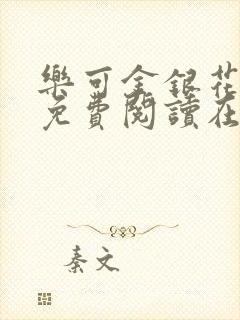 樂可金銀花
免費閱讀在
秦文